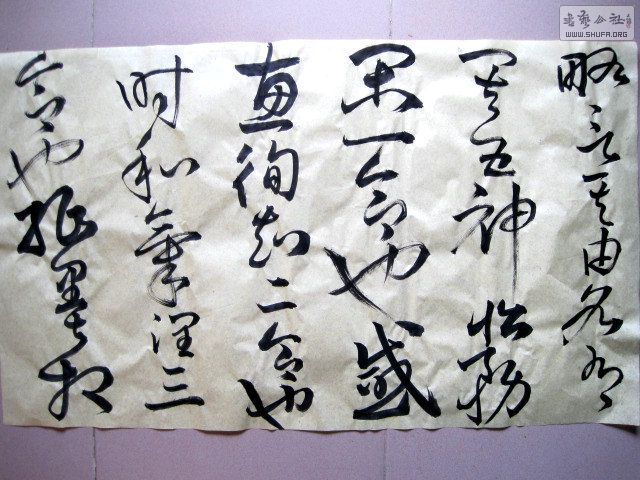 略言其由各有
其五神怡務
閑一合也感
惠徇知二合也
时和氣潤三
合也紙墨相
書藝公社
WWW.SHUFA.ORG